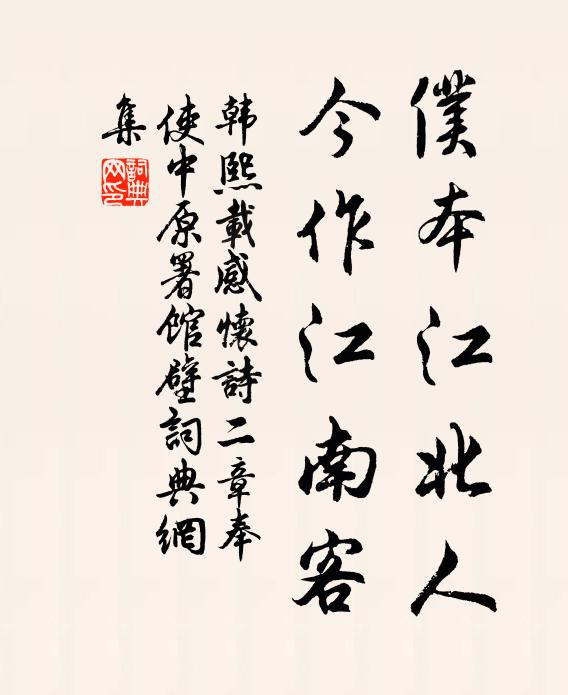 僕本江北人
今作江南客
韩熙載感懷詩二章奉
使中原署館壁詞典網
集
詞典網印